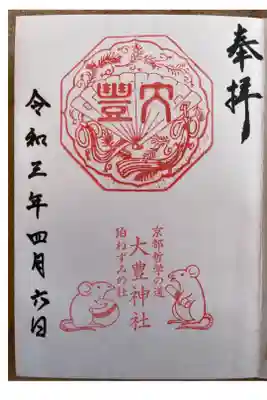 奉拝
大豊
京都哲学の道
大豊神社
狛ねずみの社
令和三年四月六日